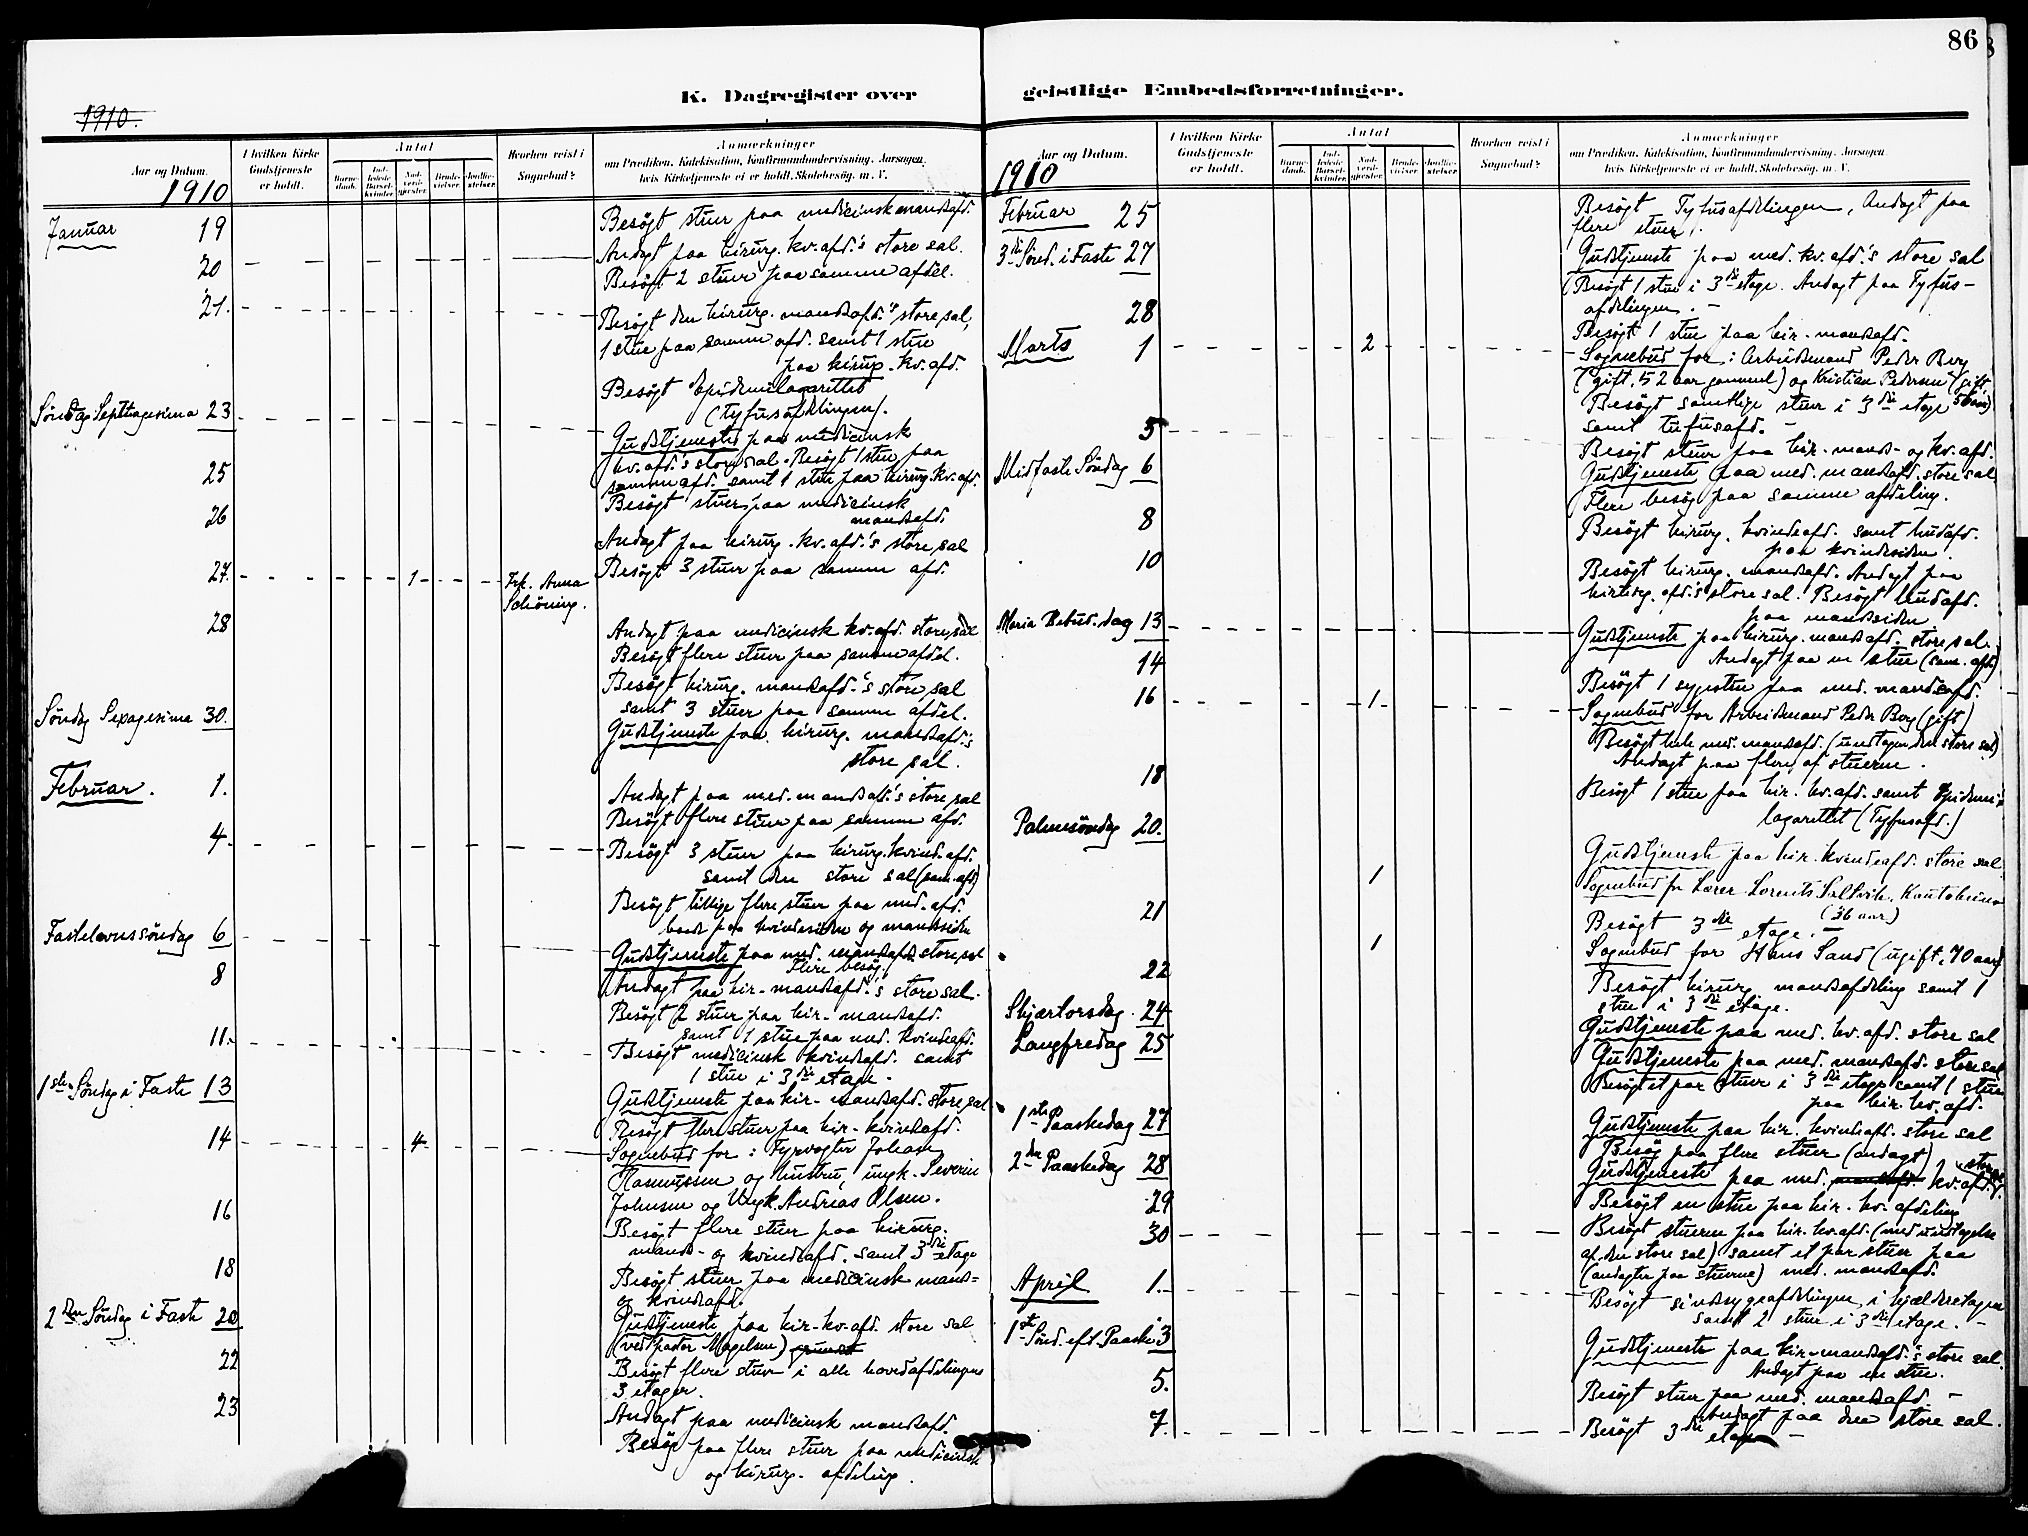 86
K. Dagregister over geistlige Embedsforretninger.
1910.
Aar og Datum.
1910
I hvilken Kirke Gudstjeneste er holdt.
Antal
Barnedaab.
Indledede Barselkvinder.
Nadverdgjester.
Brudevielser.
Jordfæstelser.
Hvorhen reist i Sognebud?
Anmerkninger
om Prædiken, Katekisation, Konfirmandundervisning, Aarsagen,
hvis Kirketjeneste ei er holdt, Skolebesøg. m. V.
Januar 19
Besögt stuer paa medicinsk mandsafd.
Andagt paa kirurg. kv. afd.'s store sal.
20
Besögt 2 stuer paa samme afdel.
21.
Besögt den kirurg. mandsafd.'s store sal,
1 stue paa samme afd. samt 1 stue
paa kirurg. kv. afd.
Besögt epidemilazarettet
(tyfusafdelingen).
Söndag Septuagesima 23
Gudstjeneste paa medicinsk
kv. afd.'s store sal. Besögt 1 stue paa
samme afd. samt 1 stue paa kirurg. kv. afd.
25
Besögt stuer paa medicinsk
mandsafd.
26
Andagt paa kirurg. kv. afd.'s store sal
Besögt 3 stuer paa samme afd.
27. 1 Frk. Anna
Schöning.
28
Andagt paa medicinsk kv. afd. store sal
Besögt flere stuer paa samme afdel.
Besögt kirurg. mandsafd.'s store sal
samt 3 stuer paa samme afdel.
Söndag Sexagesima 30.
Gudstjeneste paa kirurg. mandsafd.'s
store sal.
Februar. 1.
Andagt paa med. mandsafd.'s store sal
Besögt flere stuer paa samme afd.
4.
Besögt 3 stuer paa kirurg. kvind. afd.
samt den store sal (sam. afd)
Besögt tillige flere stuer paa med. afd.
baade paa kvindesiden og mandssiden
Fastelavnssöndag 6
Gudstjeneste paa med. mandsafds store sal
Flere besög.
8
Andagt paa kir. mandsafd.'s store sal.
Besögt 2 stuer paa kir. mandsafd.
samt 1 stue paa med. kvindeafd.
11.
Besögt medicinsk kvindeafd. samt
1 stue i 3die etage.
1ste Söndag i Faste 13
Gudstjeneste paa kir. mandsafd. store sal
Besögt flere stuer paa kir. kvindeafd.
14 4
Sognebud for: Fyrvogter Johan
Rasmussen og hustru, ungk. Severin
Johnsen og Ungk. Andreas Olsen.
16
Besögt flere stuer paa kirurg.
mands- og kvindeafd. samt 3die etage
18
Besögt stuer paa medicinsk mands-
og kvindeafd.
2den Söndag i Faste 20
Gudstjeneste paa kir. kv. afd. store sal
(ved pastor Magelsen)
22
Besögt flere stuer i alle hovedafdelingens
3 etager.
23
Andagt paa medicinsk mandsafd.
Besög paa flere stuer paa medicinsk
og kirurg. afdeling.
Aar og Datum.
1910
I hvilken Kirke Gudstjeneste er holdt.
Antal
Barnedaab.
Indledede Barselkvinder.
Nadverdgjester.
Brudevielser.
Jordfæstelser.
Hvorhen reist i Sognebud?
Anmærkninger
om Prædiken, Katekisation, Konfirmandundervisning, Aarsagen,
hvis Kirketjeneste ei er holdt, Skolebesøg. m. V.
Februar 25
Besögt Tyfusafdelingen, Andagt paa
flere stuer.
3die Sönd. i Faste 27
Gudstjeneste paa med. kv. afd.'s store sal
Besögt 1 stue i 3die etage. Andagt paa Tyfus-
afdelingen.
28
Besögt 1 stue paa kir. mandsafd.
Marts 1 2
Sognebud for: Arbeidsmand Peder Berg
(gift, 52 aar gammel) og Kristian Pedersen (gift
Besögt samtlige stuer i 3die etage
samt tufusafd.
5
Besögt stuer paa kir. mands- og kv. afd.
Midfaste Söndag 6
Gudstjeneste paa med. mandsafd. store sal
Flere besög paa samme afdeling.
8
Besögt kirurg. kvindeafd. samt hudafd.
paa kvindesiden.
10
Besögt kirurg. mandsafd. Andagt paa
kirurg. afd.'s store sal. Besögt hudafd.
paa mandssiden
Maria Bebud. dag 13
Gudstjeneste paa kirurg. mandsafd. store sal.
Andagt paa en stue (sam. afd)
14
Besögt 1 sygestue paa med. mandsafd.
16 1
Sognebud for Arbeidsmand Peder Berg (gift)
Besögt hele med. mandsafd. (undtagen den store sal)
Andagt paa flere af stuerne.
18
Besögt 1 stue paa kir. kv. afd. samt Epidemi-
lazarettet (Tyfusafd.)
Palmesöndag 20.
Gudstjeneste paa kir. kvindeafd. store sal
1
Sognebud for Lærer Lorents Saltvik, Kautokeino
(36 aar)
21
Besögt 3die etage.
1
Sognebud for Hans Sand (ugift, 70 aar)
22
Besögt kirurg mandsafdeling samt 1
stue i 3die etage.
Skjærtorsdag. 24
Gudstjeneste paa med. kv. afd. store sal
Langfredag 25
Gudstjeneste paa med. mandsafd. store sal
Besögt et par stuer i 3die etage samt 1 stue
paa kir. kv. afd.
1ste Paaskedag 27
Gudstjeneste paa kir. kvindeafd. store sal
Besög paa flere stuer (andagt)
2den Paaskedag 28
Gudstjeneste paa med. mandsafd. kv. afd. store
29
Besögt en stue paa kir. kv. afdeling
30
Besögt stuerne paa kir. kv. afd. (med undtagelse
af den store sal) samt et par stuer paa
(andagter paa stuerne) med. mandsafd.
April 1.
Besögt sindssygeafdelingen i kjælderetagen
samt 2 stuer i 3die etage.
1ste Sönd. eft. Paaske 3
Gudstjeneste paa kir. mandsafd.'s store sal.
Andagt paa en stue.
5.
Besögt stuer paa med. mandsafd.
Andagt paa den store sal.
7.
Besögt 3die etage